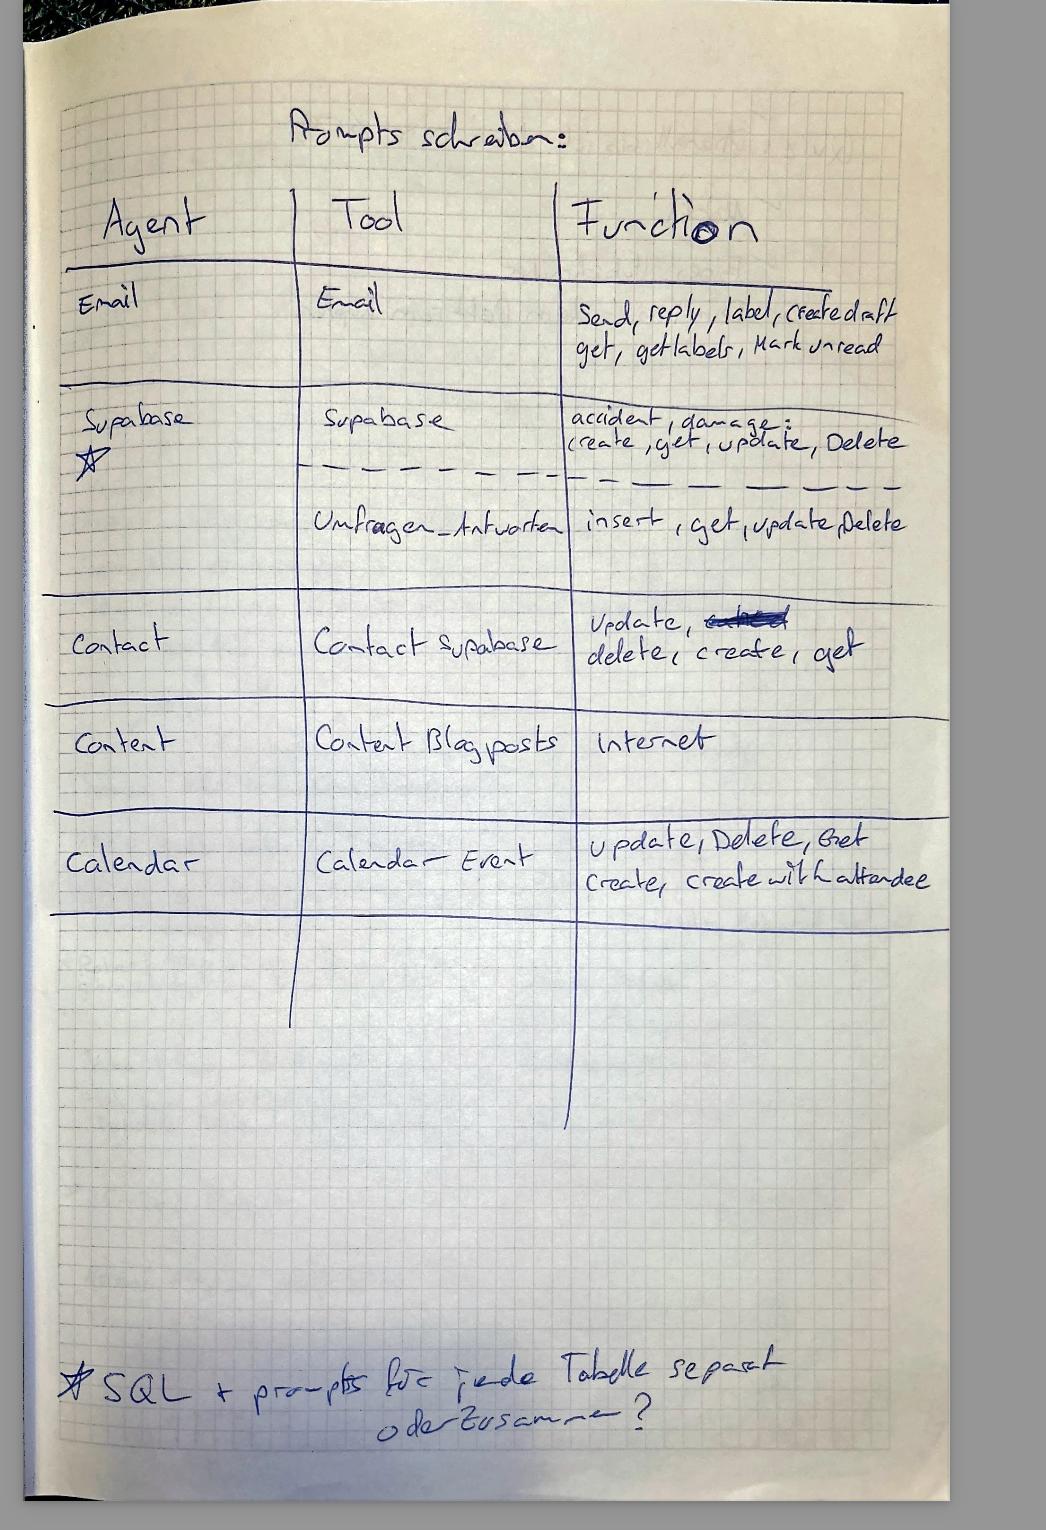 Prompts schreiben:
Agent Tool Function
Email Email Send, reply, label, create draft
get, getlabels, Mark unread
Supabase Supabase accident, damage:
create, get, update, Delete
Umfragen_Antworten insert, get, update, Delete
Contact Contact Supabase update,
delete, create, get
Content Content Blogposts internet
Calendar Calendar Event update, Delete, Get
Create, create with attendee
SQL + prompts für jede Tabelle separat
oder Zusammen?